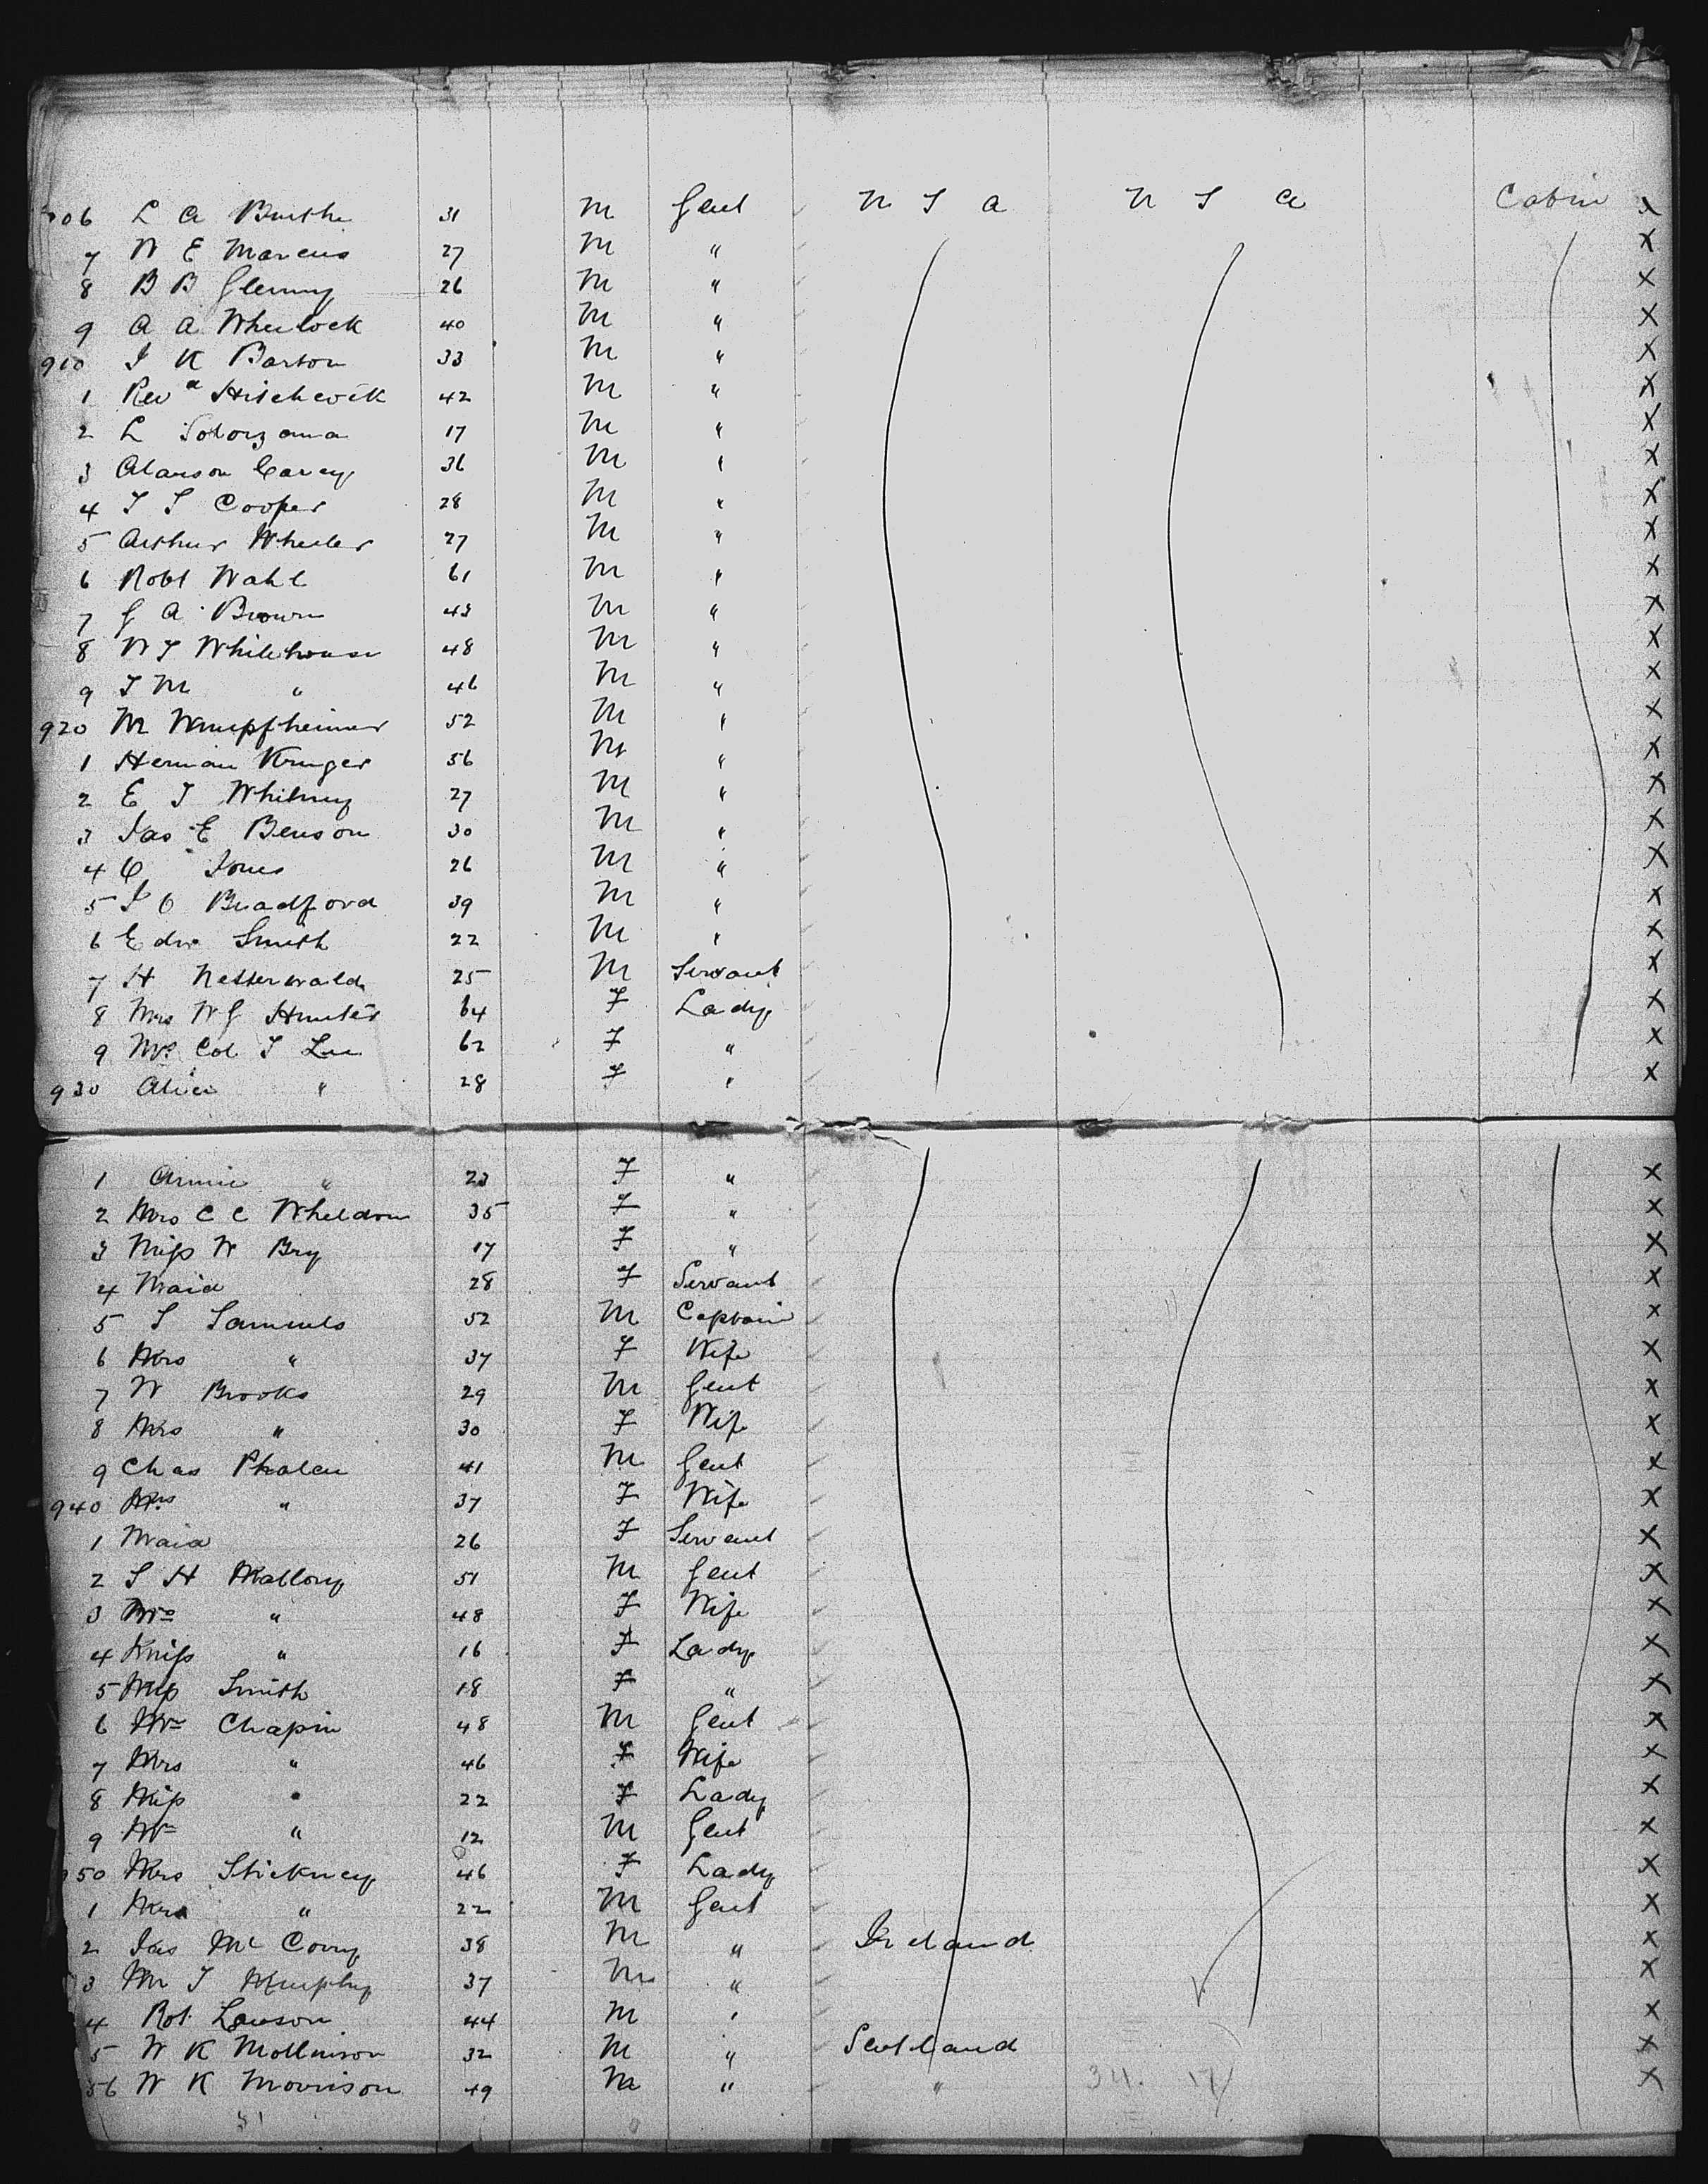 906 L A 31 M Gent U S A U S A Cabin X
7 W E Marcus 27 M " X
8 B B Glenny 26 M " X
9 A A Wheelock 40 M " X
910 J K Barton 33 M " X
1 Revd Hitchcock 42 M " X
2 L Solorzana 17 M " X
3 Alanson Carey 36 M " X
4 T S Cooper 28 M " X
5 Arthur Wheeler 27 M " X
6 Robt Wahl 61 M " X
7 G A Brown 43 M " X
8 W T Whitehouse 48 M " X
9 T M " 46 M " X
920 M Wampfheimer 52 M " X
1 Herman Kruger 56 M " X
2 E T Whitney 27 M " X
3 Jas E Benson 30 M " X
4 C Jones 26 M " X
5 J O Bradford 39 M " X
6 Edw Smith 22 M " X
7 H Netterwald 25 M Servant X
8 Mrs W G Hunter 64 F Lady X
9 Mrs Col T Lee 62 F " X
930 Alice " 28 F " X
1 Annie " 23 F " X
2 Mrs C C Wheldon 35 F " X
3 Miss W Bry 17 F " X
4 Maid 28 F Servant X
5 S Samuels 52 M Captain X
6 Mrs " 37 F Wife X
7 W Brooks 29 M Gent X
8 Mrs " 30 F Wife X
9 Chas Phalen 41 M Gent X
940 Mrs " 37 F Wife X
1 Maid 26 F Servant X
2 S H Mallory 51 M Gent X
3 Mrs " 48 F Wife X
4 Miss " 16 F Lady X
5 Miss Smith 18 F " X
6 Mr Chapin 48 M Gent X
7 Mrs " 46 F Wife X
8 Miss " 22 F Lady X
9 Mr " 12 M Gent X
950 Mrs Stickney 46 F Lady X
1 " 22 M Gent X
2 Jas Mc Corry 38 M " Ireland X
3 Mr T Murphy 37 M " X
4 Rot Lawson 44 M " X
5 W K Mollinson 32 M " Scotland X
56 W K Morrison 49 M " " 34. 17 X